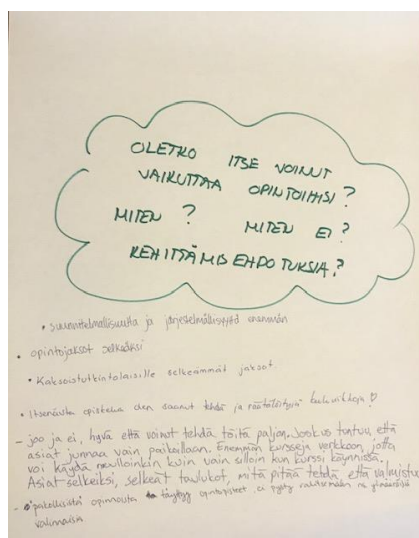 OLETKO ITSE VOINUT
VAIKUTTAA OPINTOIHISI?
MITEN ? MITEN EI?
KEHITTÄMISEHDOTUKSIA?
• suunnitelmallisuutta ja järjestelmällisyyttä enemmän
• opintojaksot selkeäksi
• Kaksoistutkintolaisille selkeämmät jaksot.
• Itsenäistä opiskelua olen saanut tehdä ja räätälöityjä ♡
– joo ja ei, hyvä että voinut tehdä töitä paljon. Joskus tuntuu, että
asiat junnaa vain paikoillaan. Enemmän kursseja verkkoon, jotta
voi käydä milloinkin kuin vain silloin kun kurssi käynnissä.
Asiat selkeiksi, selkeät taulukot, mitä pitää tehdä että valmistuu
– pakollisista opinnoista täyttyy opintopisteet, ei pysty ylimääräisiä
valinnaisia